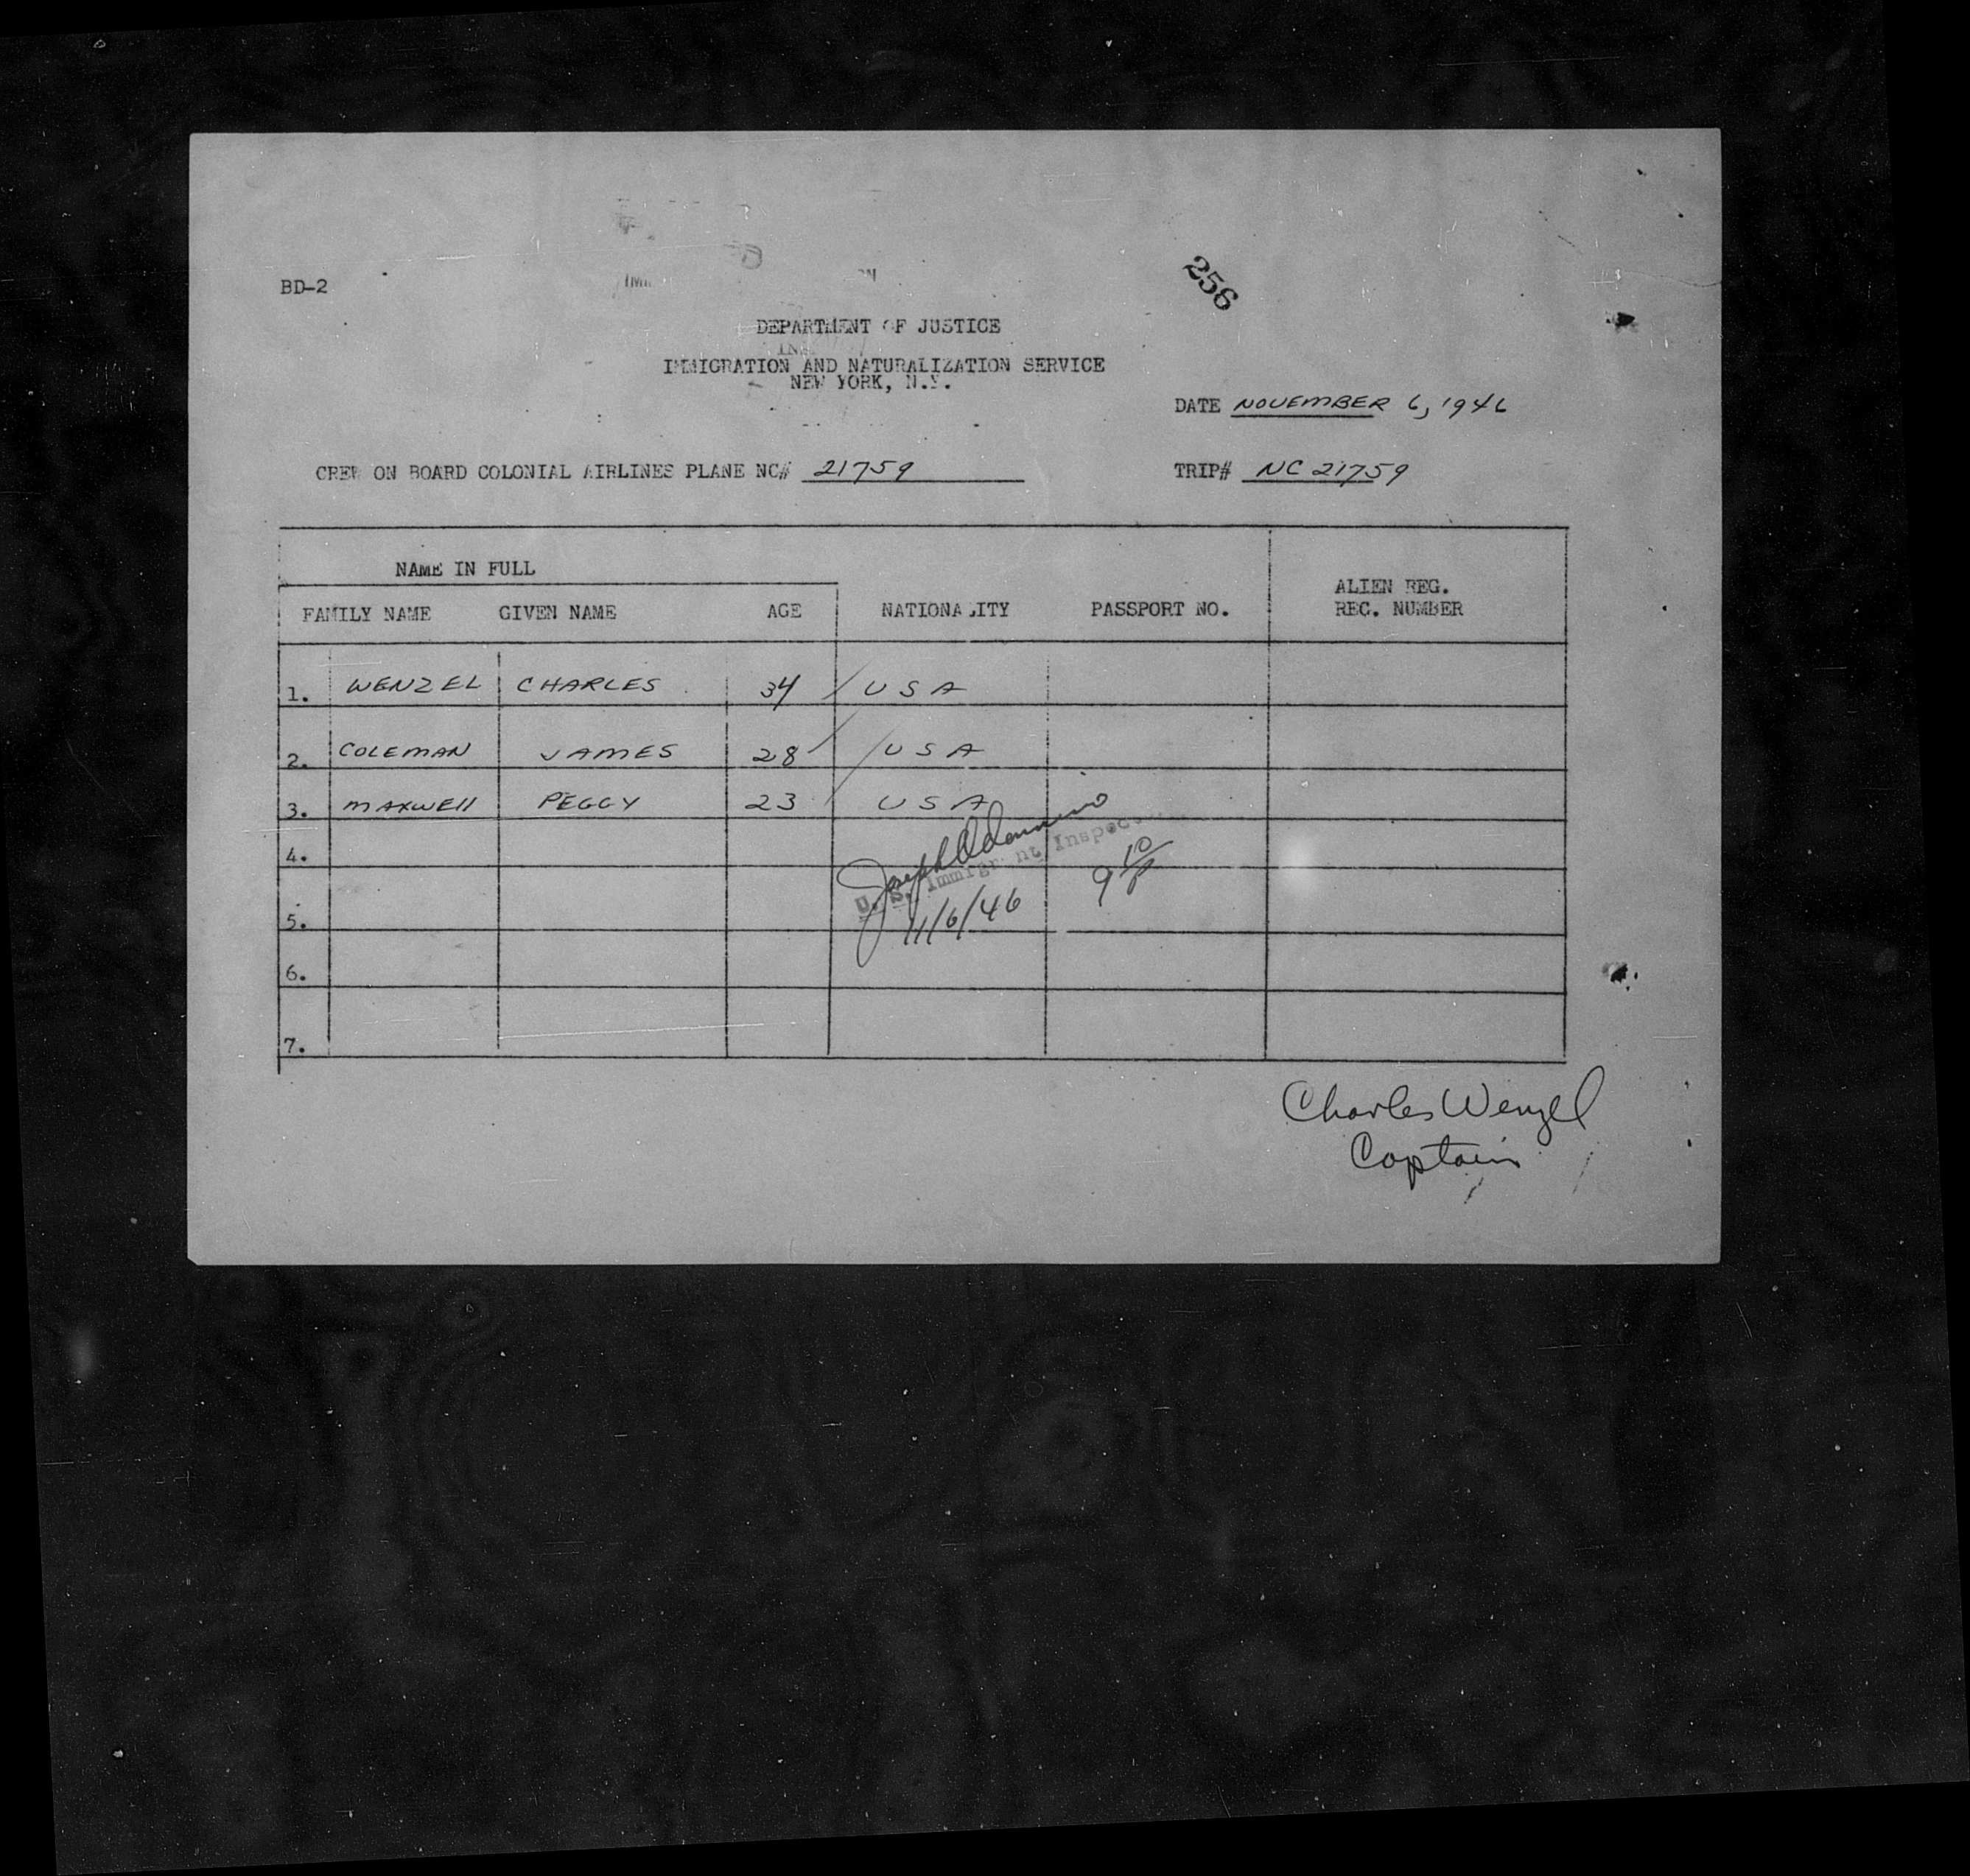 BD-2
256
DEPARTMENT OF JUSTICE
IMMIGRATION AND NATURALIZATION SERVICE
NEW YORK, N.Y.
DATE NOVEMBER 6, 1946
CREW ON BOARD COLONIAL AIRLINES PLANE NC# 21759 TRIP# NC 21759
NAME IN FULL
ALIEN REG.
FAMILY NAME GIVEN NAME AGE NATIONALITY PASSPORT NO. REC. NUMBER
1. WENZEL CHARLES 34 USA
2. COLEMAN JAMES 28 USA
3. MAXWELL PEGGY 23 USA
4.
Joseph
U. S. Immigrant Inspector
9 10/P
11/6/46
5.
6.
7.
Charles Wenzel
Captain